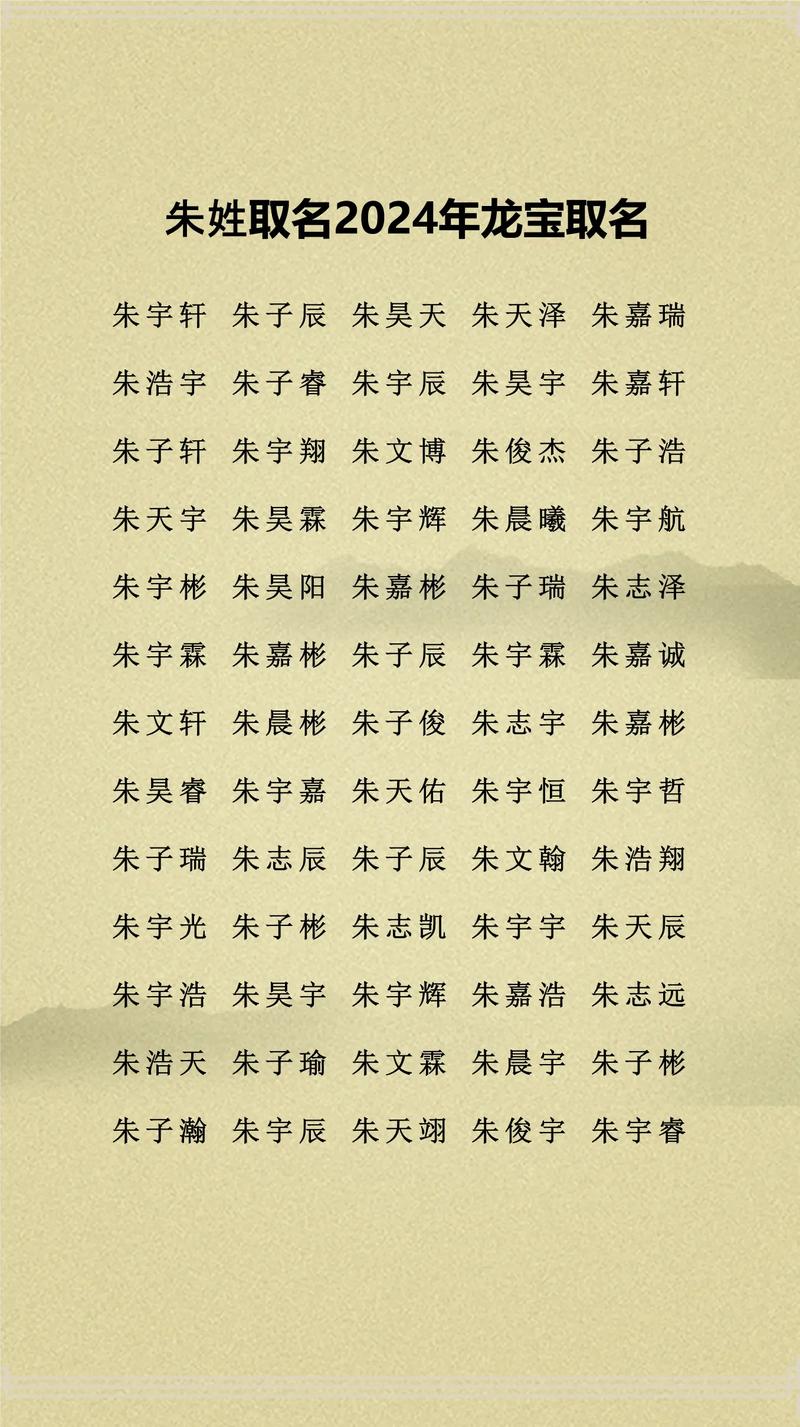 朱姓取名2024年龙宝取名
朱宇轩 朱子辰 朱昊天 朱天泽 朱嘉瑞
朱浩宇 朱子睿 朱宇辰 朱昊宇 朱嘉轩
朱子轩 朱宇翔 朱文博 朱俊杰 朱子浩
朱天宇 朱昊霖 朱宇辉 朱晨曦 朱宇航
朱宇彬 朱昊阳 朱嘉彬 朱子瑞 朱志泽
朱宇霖 朱嘉彬 朱子辰 朱宇霖 朱嘉诚
朱文轩 朱晨彬 朱子俊 朱志宇 朱嘉彬
朱昊睿 朱宇嘉 朱天佑 朱宇恒 朱宇哲
朱子瑞 朱志辰 朱子辰 朱文翰 朱浩翔
朱宇光 朱子彬 朱志凯 朱宇宇 朱天辰
朱宇浩 朱昊宇 朱宇辉 朱嘉浩 朱志远
朱浩天 朱子瑜 朱文霖 朱晨宇 朱子彬
朱子瀚 朱宇辰 朱天翊 朱俊宇 朱宇睿